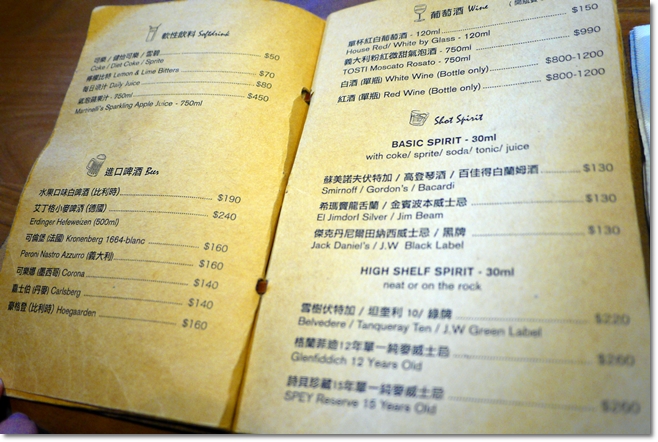 軟性飲料 Softdrink
可樂 / 健怡可樂 / 雪碧 $50
Coke / Diet Coke / Sprite
檸檬比特 Lemon & Lime Bitters $70
每日現汁 Daily Juice $80
氣泡蘋果汁 - 750ml $450
Martinelli's Sparkling Apple Juice - 750ml
進口啤酒 Beer
水果口味白啤酒 (比利時) $190
艾丁格小麥啤酒 (德國) $240
Erdinger Hefeweizen (500ml)
可倫堡 (法國) Kronenberg 1664-blanc $160
Peroni Nastro Azzurro (義大利) $160
可樂娜 (墨西哥) Corona $140
嘉士伯 (丹麥) Carlsberg $140
豪格登 (比利時) Hoegaarden $160
葡萄酒 Wine
單杯紅白葡萄酒 - 120ml $150
House Red/ White by Glass - 120ml
義大利粉紅微甜氣泡酒 - 750ml $990
TOSTI Moscato Rosato - 750ml
白酒 (單瓶) White Wine (Bottle only) $800-1200
紅酒 (單瓶) Red Wine (Bottle only) $800-1200
Shot Spirit
BASIC SPIRIT - 30ml
with coke/ sprite/ soda/ tonic/ juice
蘇美諾夫伏特加 / 高登琴酒 / 百佳得白蘭姆酒 $130
Smirnoff / Gordon's / Bacardi
希瑪竇龍舌蘭 / 金賓波本威士忌 $130
El Jimdorl Silver / Jim Beam
傑克丹尼爾田納西威士忌 / 黑牌 $130
Jack Daniel's / J.W Black Label
HIGH SHELF SPIRIT - 30ml
neat or on the rock
雪樹伏特加 / 坦奎利 10/ 綠牌 $220
Belvedere / Tanqueray Ten / J.W Green Label
格蘭菲迪12年單一純麥威士忌 $260
Glenfiddich 12 Years Old
詩貝珍藏15年單一純麥威士忌 $260
SPEY Reserve 15 Years Old